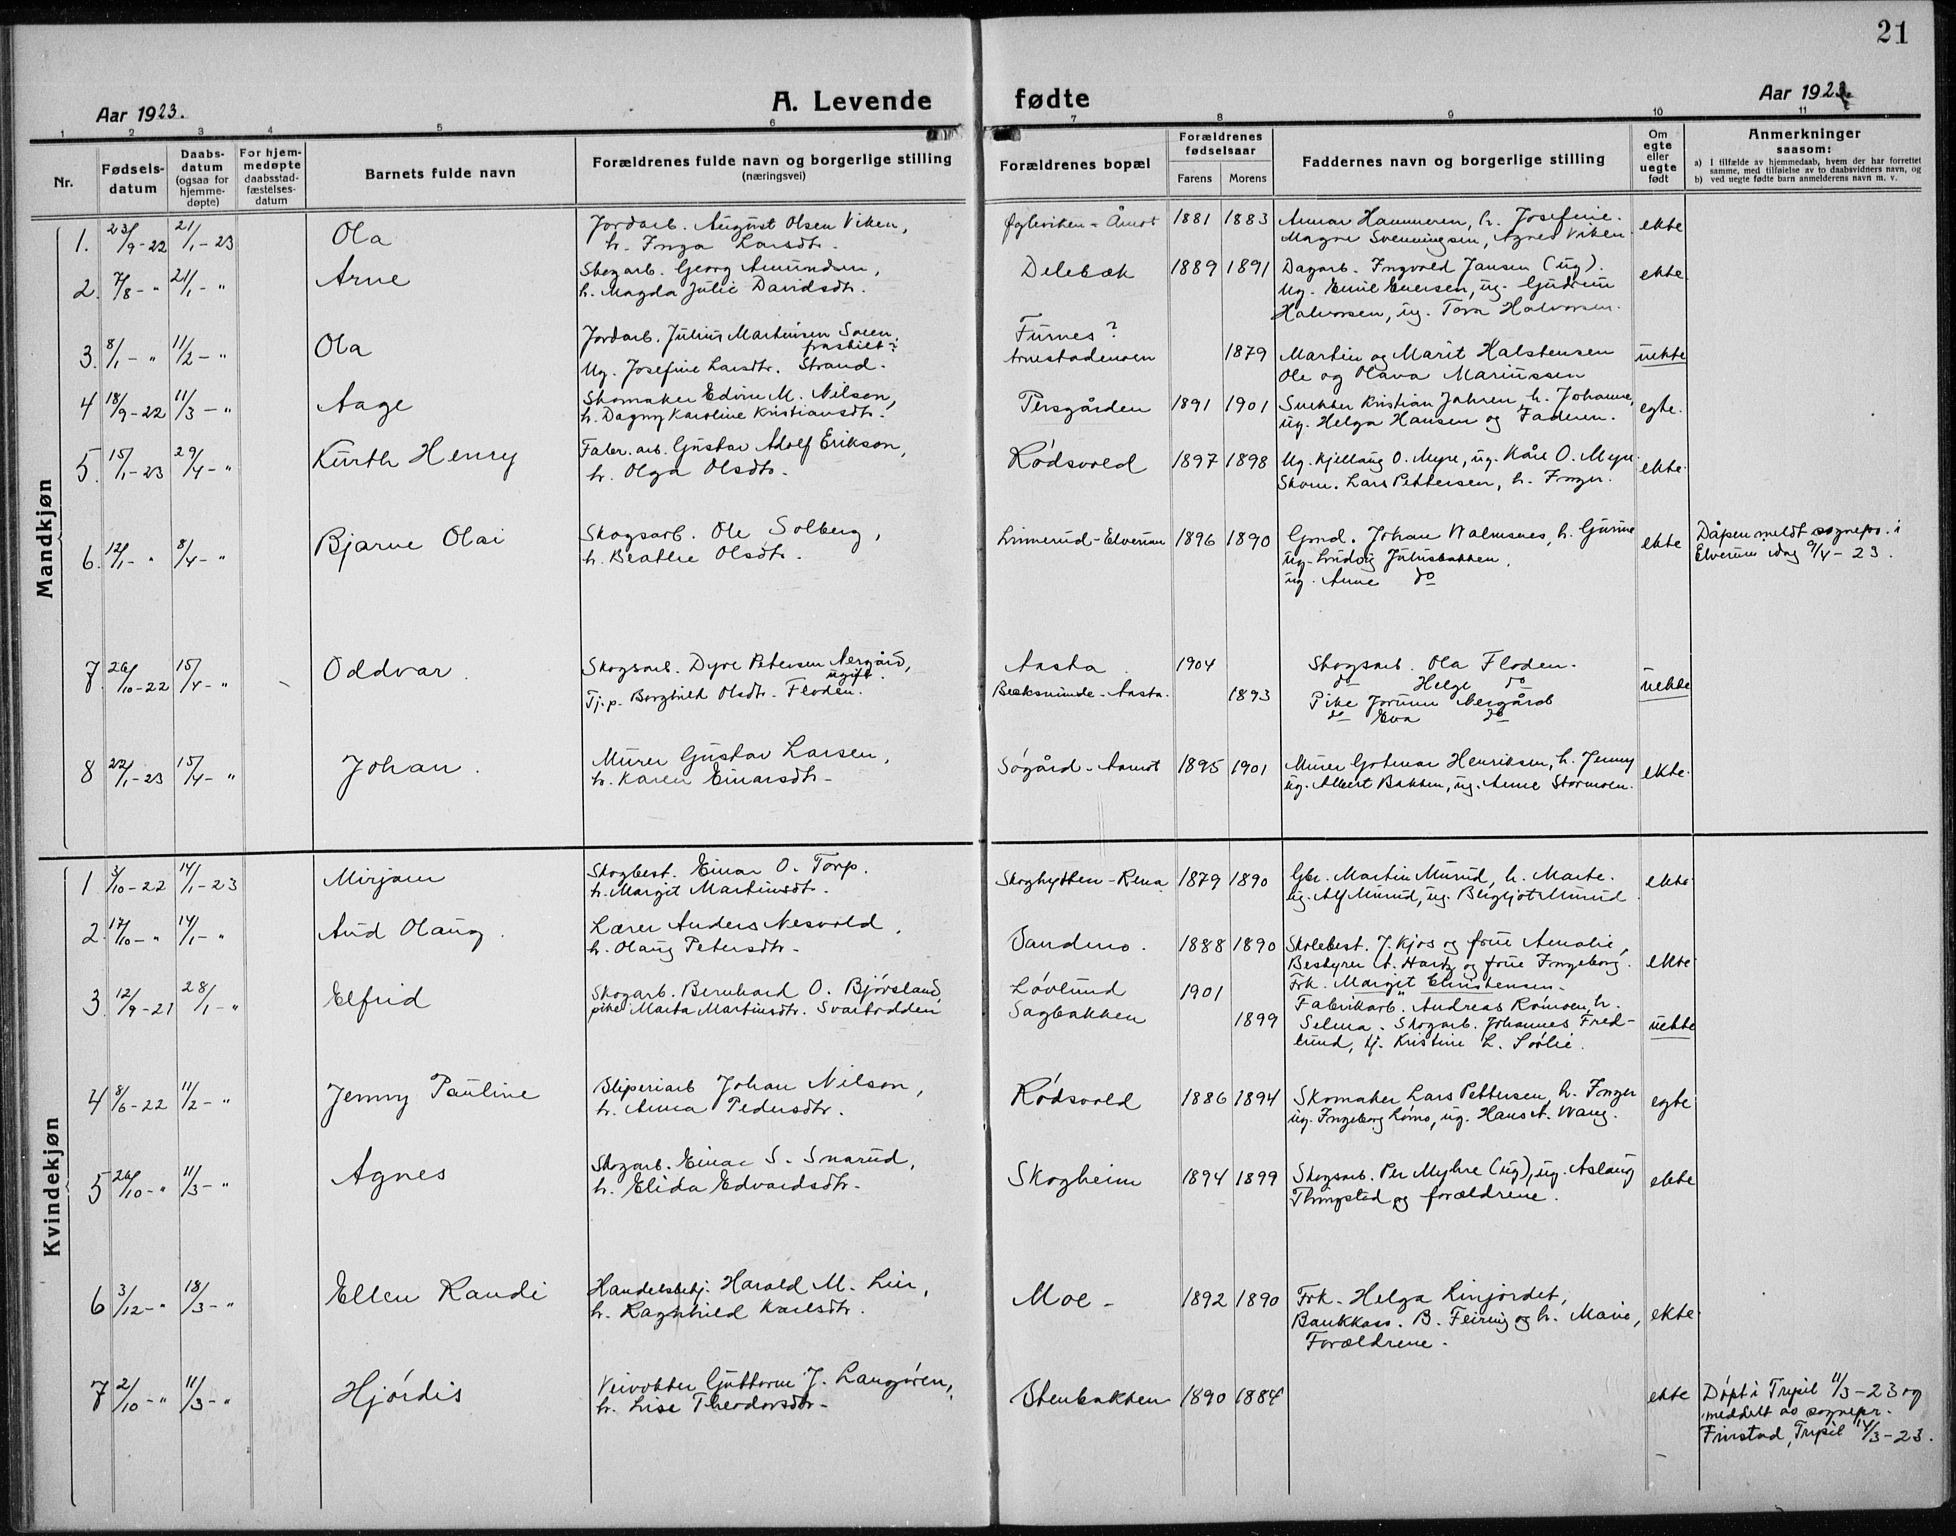 21
Aar 1923.
A. Levende
fødte
Aar 1923.
1 2 3 4 5 6 7 8 9 10 11
Nr.
Fødsels-
datum
Daabs-
datum
(ogsaa for
hjemme-
døpte)
For hjem-
medøpte
daabsstad-
fæstelses-
datum
Barnets fulde navn
Forældrenes fulde navn og borgerlige stilling
(næringsvei)
Forældrenes bopæl
Forældrenes
fødselsaar
Farens Morens
Faddernes navn og borgerlige stilling
Om
egte
eller
uegte
født
Anmerkninger
saasom:
a) I tilfælde av hjemmedaab, hvem der har forrettet
samme, med tilføielse av to daabsvidners navn, og
b) ved uegte fødte barn anmelderens navn m. v.
Mandkjøn
1. 23/9-22 21/1-23 Ola
Jordarb. August Olsen Viken,
h. Inga Larsdtr.
Åmot 1881 1883
Hammeren, h. Josefine.
Magne Svenningsen, Agnes Viken.
ekte
2. 7/8 - " 21/1 - " Arne
Skogarb. Georg Amundsen,
h. Magda Julie Davidsdtr.
Delebæk 1889 1891
Dagarb. Ingvald Jansen (ug).
Ug. Emil Eversen, ug. Gudrun
Halvorsen, ug. Tora Halvorsen.
ekte
3. 8/1 - " 11/2 - " Ola
Jordarb. Julius Martinsen Soen,
fraskilt:
Ug. Josefine Larsdtr. Strand.
Furnes?
Arnestadmoen 1879
Martin og Marit Halstensen
Ole og Olava Mariussen
uekte
4 18/9-22 11/3 - " Aage
Skomaker Edvin M. Nilsen,
h. Dagny Karoline Kristiansdtr.
Persgården 1891 1901
Snekker Kristian Jahren, h. Johanne,
ug. Helga Hansen og Faderen.
egte.
5. 15/1-23 29/4 - " Kurth Henry
Fabr. arb. Gustav Adolf Erikson,
h. Olga Olsdtr.
Rødsvold 1897 1898
Ug. Kjellaug O. Myre, ug. Kåre O. Myre.
Skom. Lars Pettersen, h. Inger.
ekte.
6. 12/1 - " 8/4 - " Bjarne Olai
Skogsarb. Ole Solberg,
h. Beathe Olsdtr.
Linnerud - Elverum 1896 1890
Grnd. Johan Walmsnes, h. Gurine
ug. Ludvig Julusbakken,
ug. Anne do
ekte
Dåpen meldt sognepr. i
Elverum idag 9/4-23.
7. 26/10-22 15/4 - " Oddvar.
Skogsarb. Dyre Petersen Nergård,
ugift.
Tj.p. Borghild Olsdtr. Floden.
Aasta. 1904
Bæksminde - Aasta. 1893
Skogsarb. Ola Floden.
do Helge do
Pike Jorunn Nergård
do Eva do
uekte
8 22/1-23 15/4 - " Johan.
Murer Gustav Larsen,
h. Karen Einarsdtr.
Søgård - Aamot 1895 1901
Murer Gotmar Henriksen, h. Jenny
ug. Albert Bakken, ug. Anne Stormoen.
ekte.
Kvindekjøn
1 3/10-22 14/1-23 Mirjam
Skogbest. Einar O. Torp.
h. Margit Martinsdtr.
Skoghytten - Rena 1879 1890
Gbr. Martin Murud, h. Marte.
ug. Alf Murud, ug. Bergljot Murud.
ekte
2. 17/10 - " 14/1 - " Aud Olaug.
Lærer Anders Nesvold,
h. Olaug Petersdtr.
Sandmo. 1888 1890
Skolebest. J. Kjos og frue Amalie,
Bestyrer A. Hartz og frue Ingeborg.
Frk. Margit Christensen.
ekte
3. 12/9-21 28/1 - " Elfrid
Skogarb. Bernhard O. Bjørsland,
pike Marta Martinsdtr. Svartodden
Løvlund 1901
Sagbakken 1899
Fabrikarb. Andreas Rømoen, h.
Selma. Skogarb. Johannes Fred-
lund, tj. Kristine L. Sørlie.
uekte
4 8/6-22 11/2 - " Jenny Pauline
Sliperiarb Johan Nilson,
h. Anna Pedersdtr.
Rødsvold 1886 1894
Skomaker Lars Pettersen, h. Inger
ug. Ingeborg Lømo, ug. Hans A. Wang.
egte
5 26/10 - " 11/3 - " Agnes
Skogarb. Einar S. Snarud,
h. Elida Edvardsdtr.
Skogheim 1894 1899
Skogsarb. Per Myhre (ug), ug. Aslaug
Thingstad og forældrene.
ekte
6 3/12 - " 18/3 - " Ellen Randi
Handelsbetj. Harald M. Lien,
h. Ragnhild Karlsdtr.
Moe - 1892 1890
Frk. Helga Linjordet,
Bankkass. B. Feiring og h. Marie,
Forældrene.
ekte
7 2/10 - " 11/3 - " Hjørdis
Veivokter Guttorm J. Langøren,
h. Lise Theodorsdtr.
Stenbakken 1890 1884
ekte
Døpt i Trysil 11/3-23 og
meddelt av sognepr.
Finstad, Trysil 14/3-23.